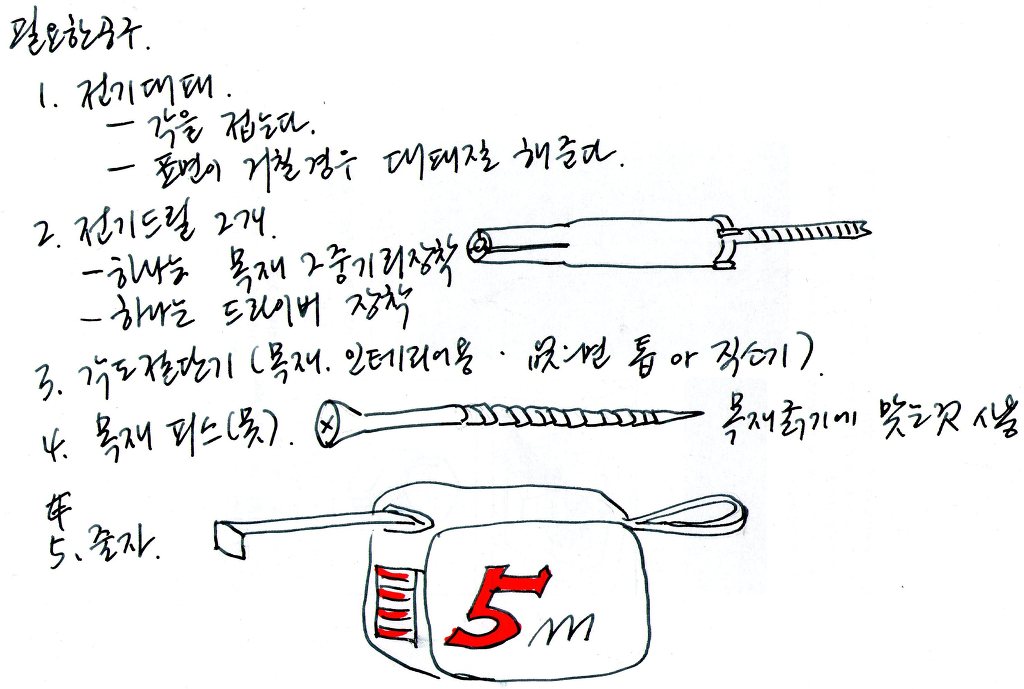 필요한공구.
1. 전기대패.
– 각을 접는다.
– 표면이 거칠경우 대패질 해준다.
2. 전기드릴 2개.
– 하나는 목재 2중기리장착
– 하나는 드라이버 장착
3. 각도절단기 (목재. 인테리어용. 없으면 톱 아 직소기).
4. 목재 피스(못). 목재굵기에 맞는것 사용
5. 줄자.
5m